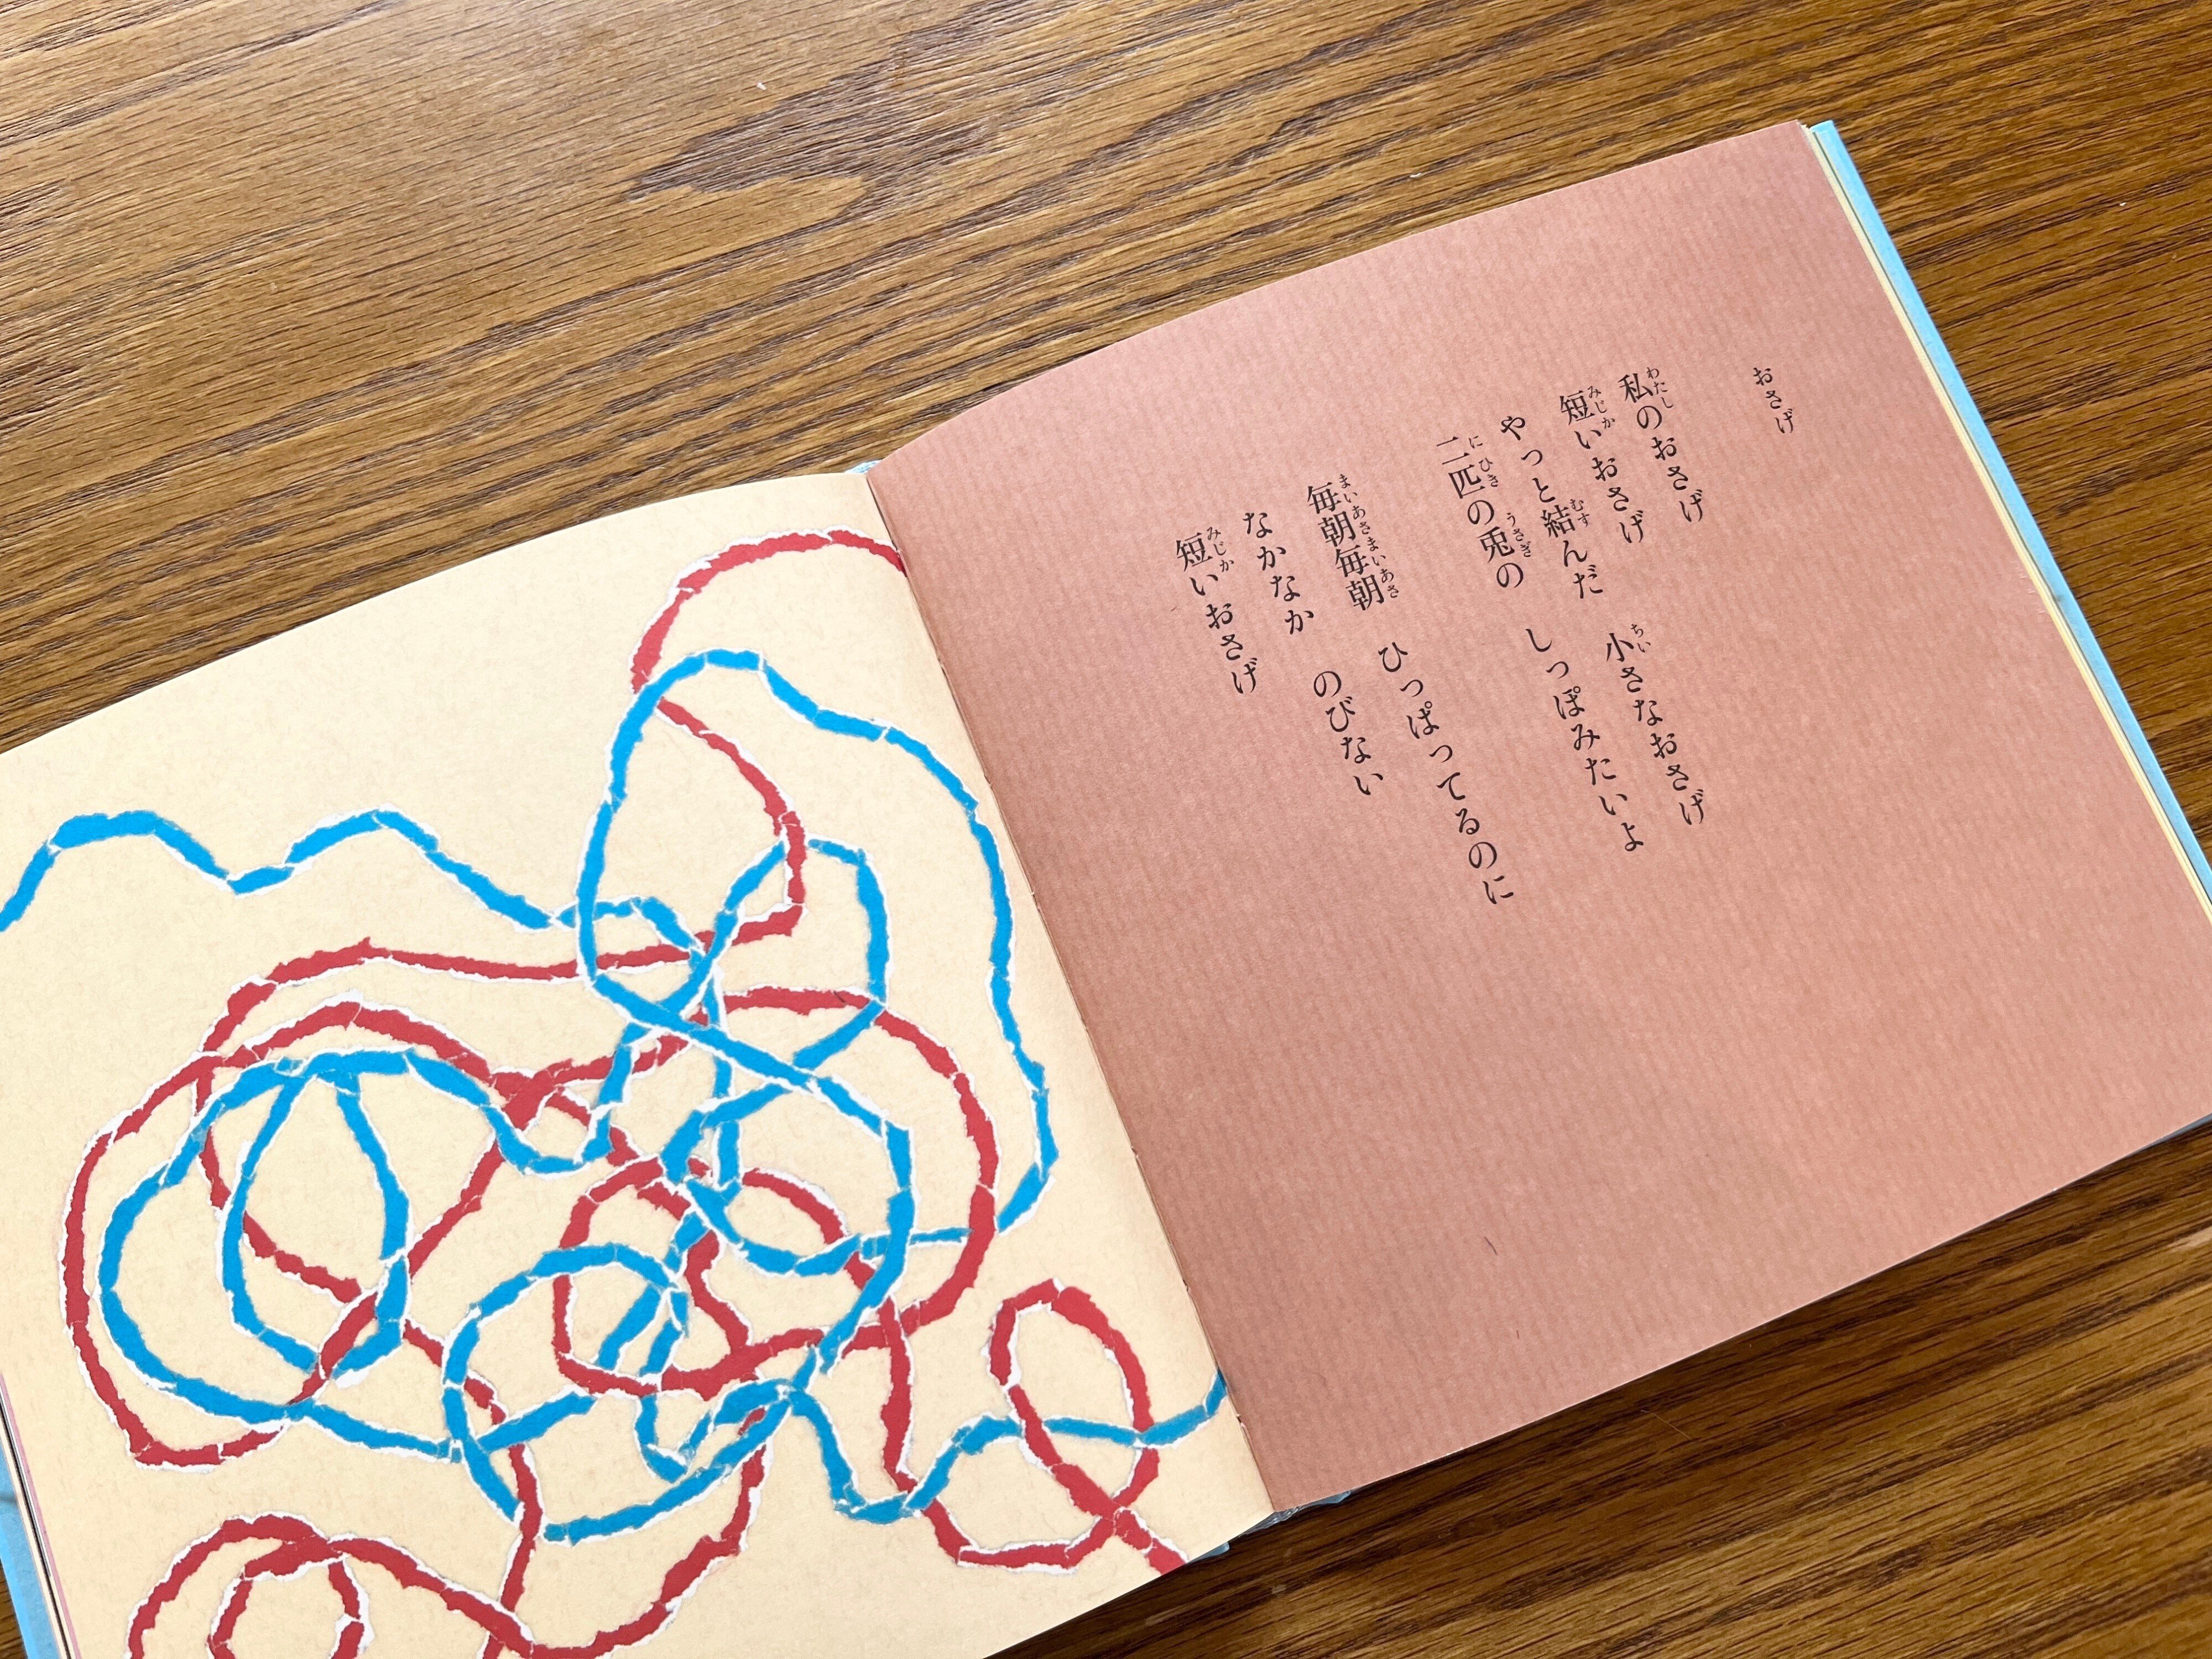 おさげ
私のおさげ
短いおさげ
やっと結んだ　小さなおさげ
二匹の兎の　しっぽみたいよ
毎朝毎朝　ひっぱってるのに
なかなか　のびない
短いおさげ